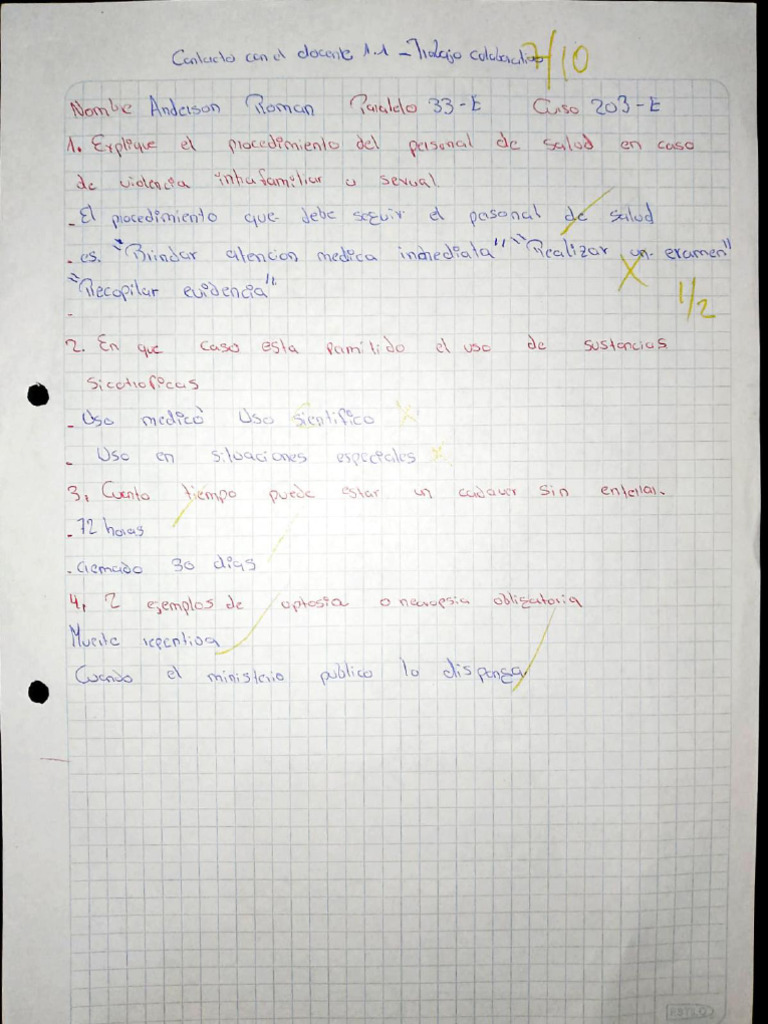 Contacto con el docente 1.1 - Trabajo colaborativo 7/10
Nombe Anderson Roman Paralelo 33-E Curso 203-E
1. Explique el procedimiento del personal de salud en caso
de violencia intrafamiliar o sexual.
- El procedimiento que debe seguir el pasonal de salud
- es. "Brindar atencion medica inmediata" "Realizar un examen"
"Recopilar evidencia"
1/2
2. En que caso esta pamitido el uso de sustancias
sicotroficas
- Uso medico Uso sientifico
- Uso en situaciones especiales
3. Cuanto tiempo puede estar un cadaver sin enterrar.
- 72 horas
- Cremado 30 dias
4. 2 ejemplos de optosia o necropsia obligatoria
Muerte repentina
Cuando el ministerio publico lo disponga